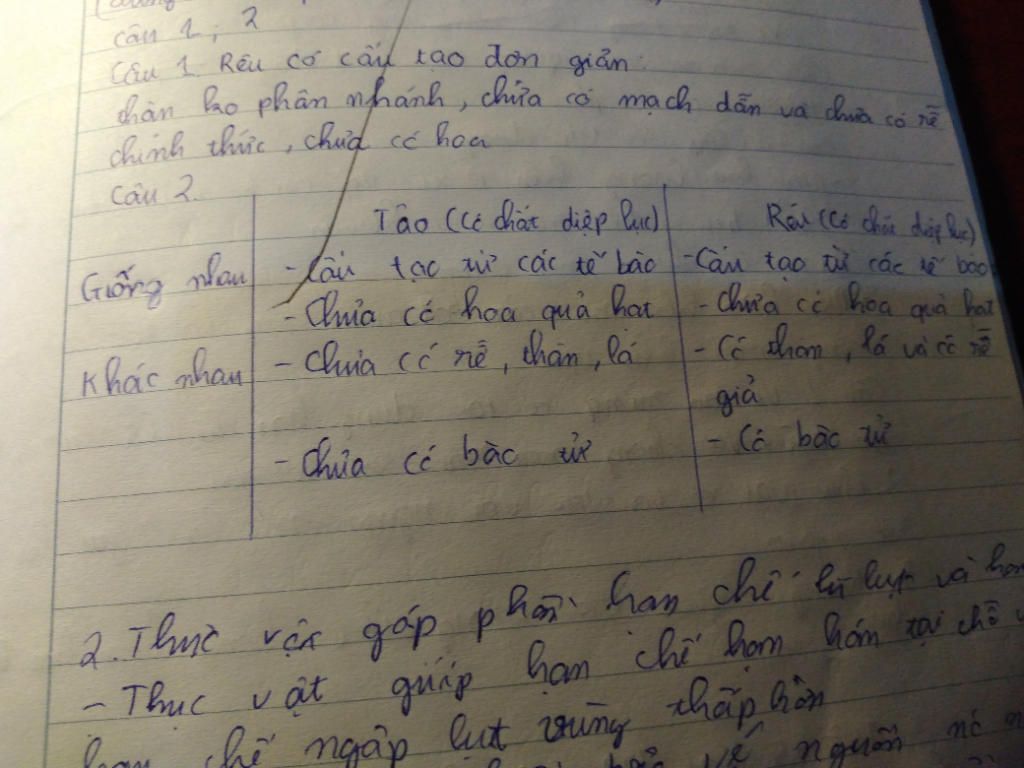 câu 1, 2
Câu 1. Rêu có cấu tạo đơn giản.
thân ko phân nhánh, chưa có mạch dẫn và chưa có rễ
chính thức, chưa có hoa
Câu 2.
Tảo (Có chất diệp lục) Rêu (Có chất diệp lục)
Giống nhau - Cấu tạo từ các tế bào - Cấu tạo từ các tế bào
- Chưa có hoa quả hạt - Chưa có hoa quả hạt
Khác nhau - Chưa có rễ, thân, lá - Có thân, lá và có rễ
giả
- Chưa có bào tử - Có bào tử
2. Thực vật góp phần hạn chế lũ lụt và hạn
- Thực vật giúp hạn chế hạn hán tại chỗ
hạn chế ngập lụt vùng thấp hơn
về nguồn